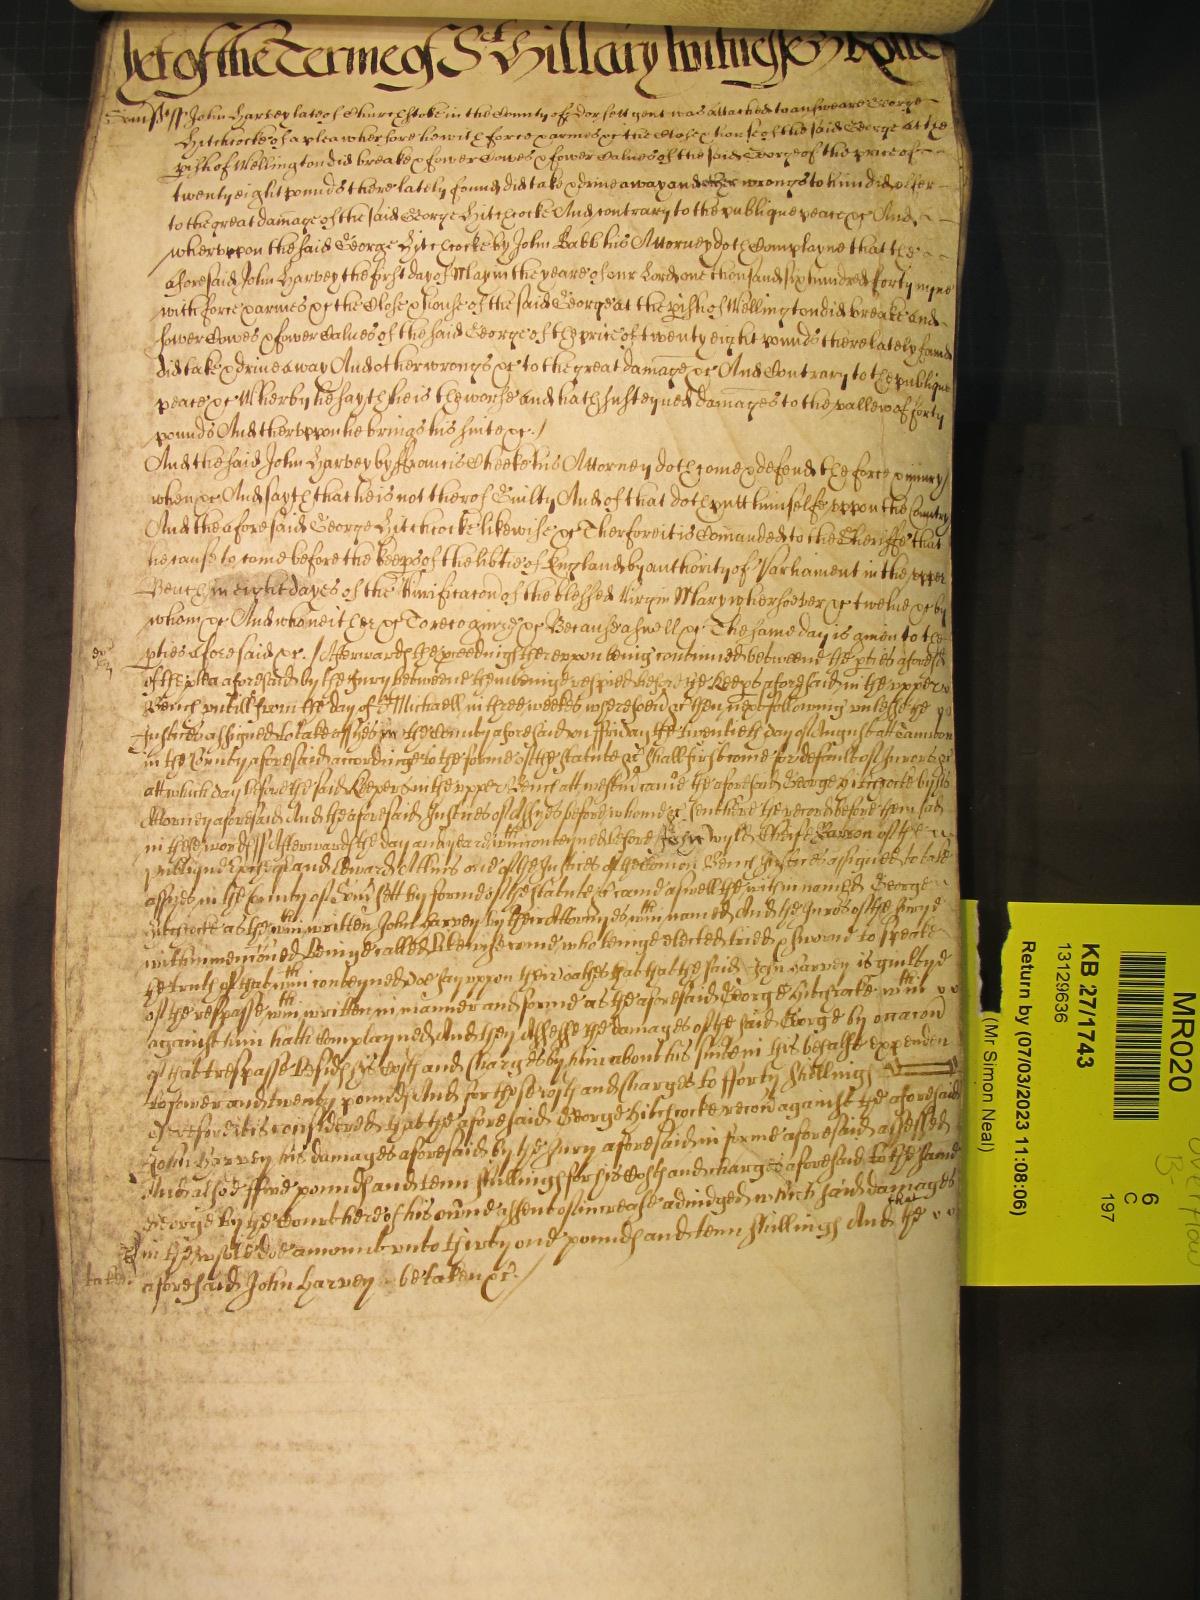 yet of the Terme of St Hillary Witnes H Rolle
Somst ss John Harvey late of Churchstoke in the County of Dorsett gent was attached to answeare George
Hitchcocke of a plea wherfore he with force & armes &c the Close & house of the said George at the
pish of Wellington did breake & fower Cowes & fower Calves of the said George of the price of
twenty eight pounds there lately found did take & drive away and other wrongs to him did offer
to the great damage of the said George Hitchcocke And contrary to the publique peace &c And
wherupon the said George Hitchcocke by John Babb his Attorney doth Complayne that the
aforesaid John Harvey the first day of May in the yeare of our Lord one thousand six hundred forty nyne
with force & armes &c the Close & house of the said George at the pish of Wellington did breake and
fower Cowes & fower Calves of the said George of the price of twenty eight pounds there lately found
did take & drive away And other wrongs &c to the great damage &c And Contrary to the publique
peace &c Wherby he sayth he is the worse and hath susteyned damages to the vallew of forty
pounds And therupon he brings his suite &c /
And the said John Harvey by Francis Cheeke his Attorney doth come & defend the force & iniury
when &c And sayth that he is not therof Guilty And of that doth putt himselfe uppon the Country
And the aforesaid George Hitchcocke likewise &c Therfore it is Comanded to the Sheriffe that
he cause to come before the keeps of the libtie of England by authority of Parliament in the upper
Bench in eight dayes of the Purificacon of the blessed Virgin Mary whersoever &c twelve &c by
whom &c And who neither &c To recognize &c Because aswell &c The same day is given to the
pties aforesaid &c. / Afterwards the pceedings thereuppon being continued betweene the pties aforesd
of the plea aforesaid by the Jury betweene them being respited before the Keeps aforesaid in the upper
Bench untill from the day of St Michaell in three weekes wheresoevr &c then next following unlesse the
Justices assigned to take Assises in the County aforesaid on Friday the twentieth day of August att Taunton
in the County aforesaid accordinge to the forme of the statute &c shall first come for default of Jurors &c
att which day before the said Keepers in the upper Bench att westmr came the aforesaid George Hitchcocke by his
Attorney aforesaid And the aforesaid Justices of Assizes before whome &c sent here the record before them had
in these words ss Afterwards the day and yeare within conteyned before John Wylde Cheife Barron of the
publique Excheqr and Edward Atkins one of the Justices of the Comon Bench Justices assigned to take
assizes in the County of Somsett by forme of the statute &c came aswell the within named George
Hitchcocke as the wthin written John Harvey by their Attorneyes wthin named And the Jurors of the Jury
within mencioned beinge called likewise come who beinge elected tried & sworne to speake
the truth of that wthin conteyned doe say uppon their oathes that the said John Harvey is guilty
of the trespasse wthin written in manner and forme as the aforesaid George Hitchcocke wthin
against him hath complayned And they Assesse the damages of the said George by occacon
of that trespasse besides his Costs and Charges by him about his suite in this behalfe expended
to fower and twenty pounds And for those costs and Charges to fforty shillings
Therefore it is considered that the aforesaid George Hitchcocke recover against the aforesaid
John Harvey his damages aforesaid by the Jury aforesaid in forme aforesaid assessed
And also ffive pounds and tenn shillings for his Costs and charges aforesaid to the same
George by the Court here of his owne assent of increase adiudged which said damages
in the whole doe amount unto thirty one pounds and tenn shillings And that the
aforesaid John Harvey be taken &c /
MR020
KB 27/1743
13129636
Return by (07/03/2023 11:08:06)
(Mr Simon Neal)
6
C
197